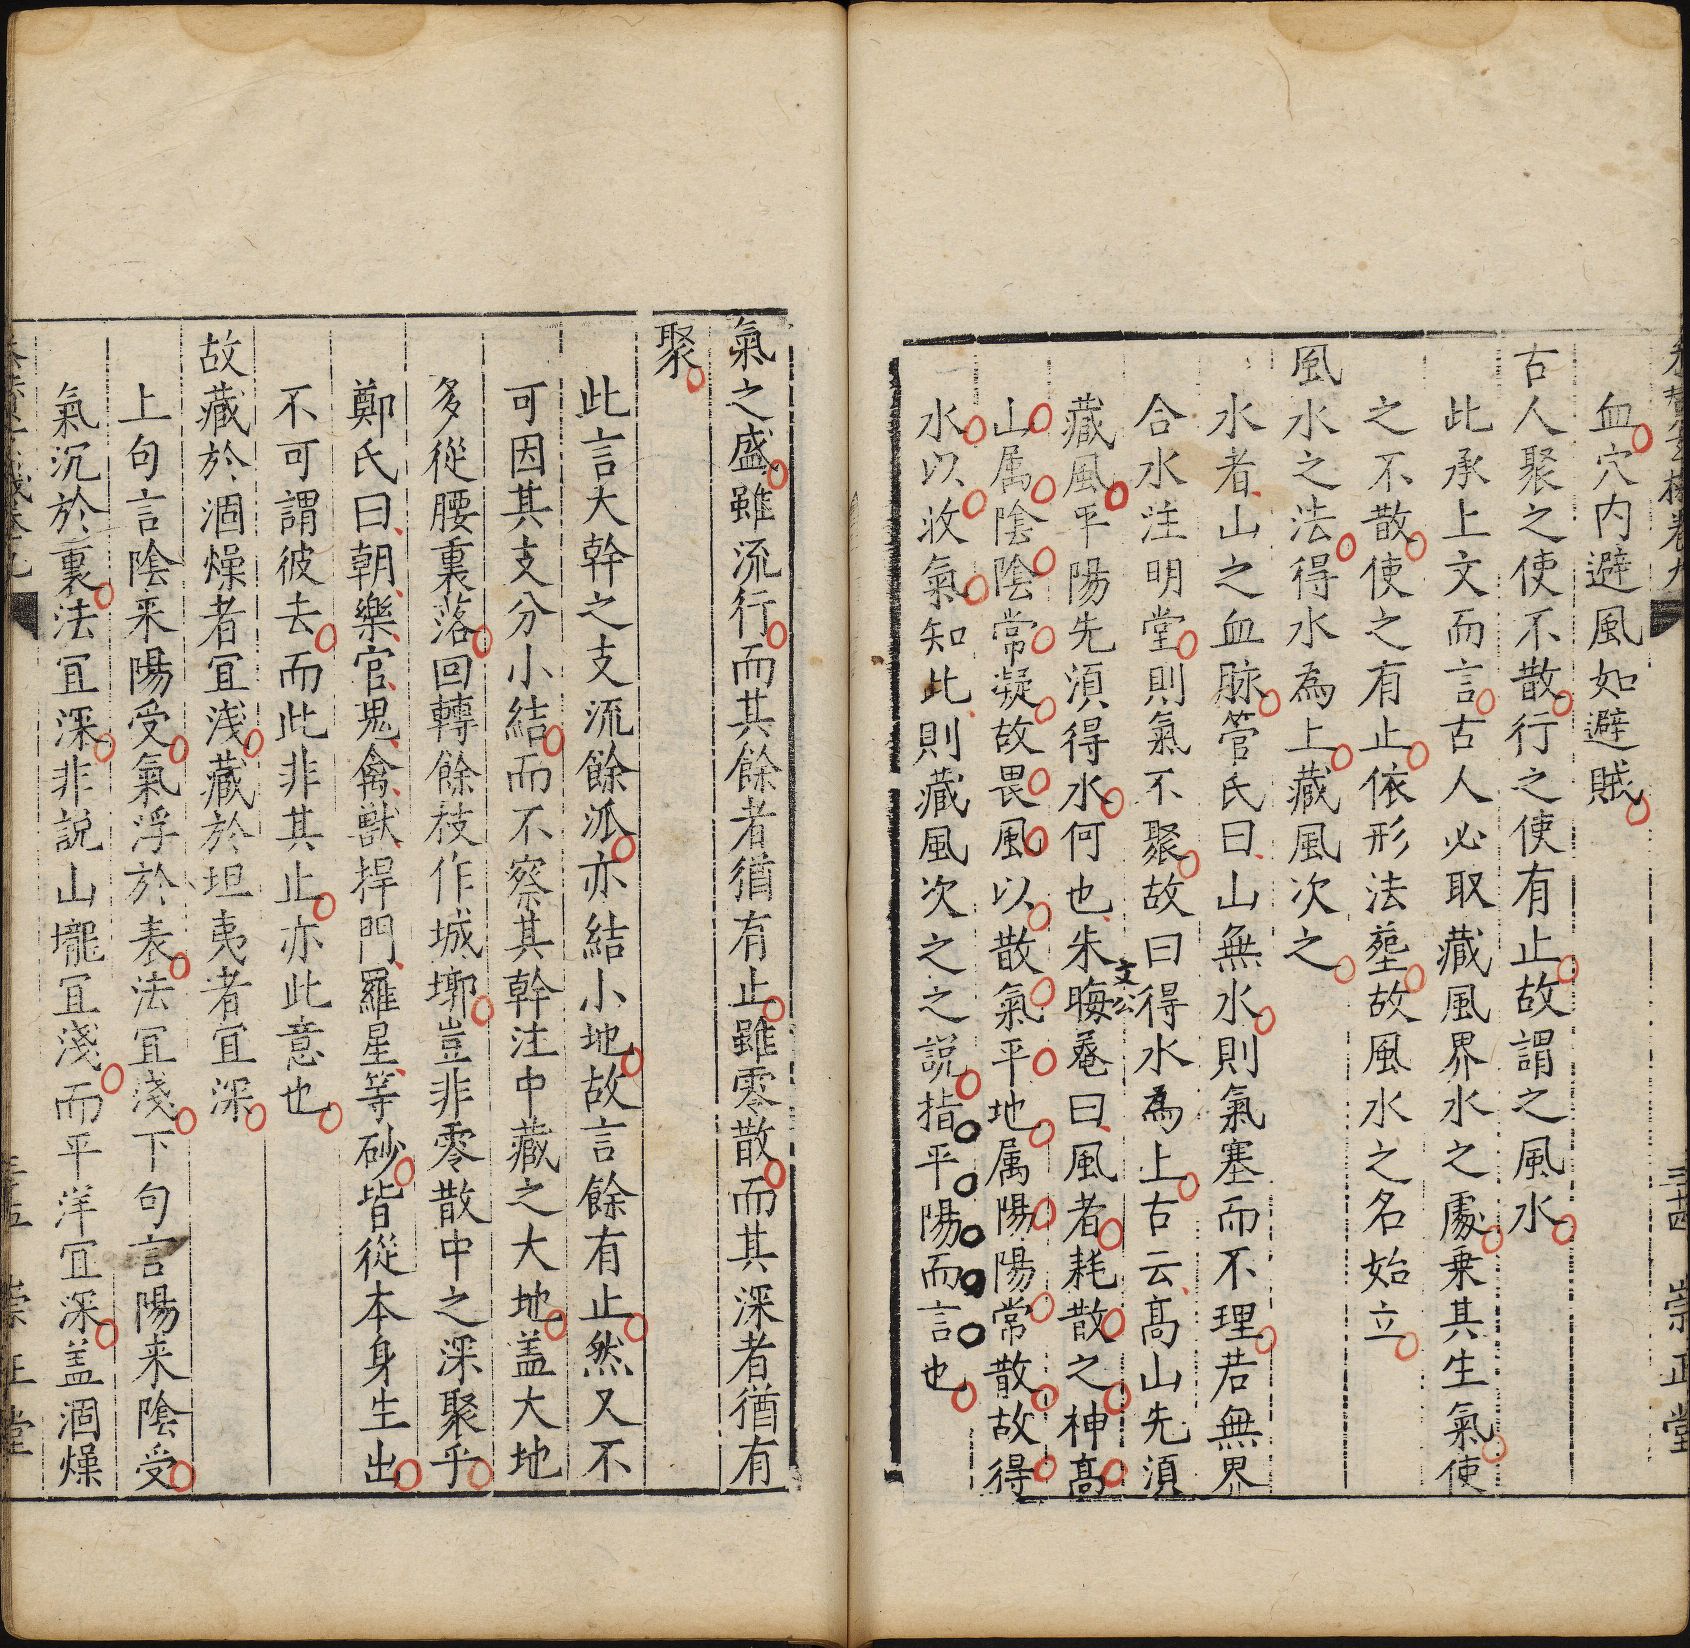 三十四 崇正堂
血穴内避風如避賊
古人聚之使不散行之使有止故謂之風水
此承上文而言古人必取藏風界水之處乗其生氣使
之不散使之有止依形法塟故風水之名始立
風水之法得水為上藏風次之
水者山之血脉管氏曰山無水則氣塞而不理若無界
合水注明堂則氣不聚故曰得水為上古云高山先湏
藏風平陽先湏得水何也朱晦菴曰風者耗散之神高
文公
山属陰陰常凝故畏風以散氣平地属陽陽常散故得
水以收氣知此則藏風次之之説指平陽而言也
氣之盛雖流行而其餘者猶有止雖零散而其深者猶有
聚
此言大幹之支流餘派亦結小地故言餘有止然又不
可因其支分小結而不察其幹注中藏之大地盖大地
多從腰裏落回轉餘枝作城墎豈非零散中之深聚乎
鄭氏曰朝樂官鬼禽獸捍門羅星等砂皆從本身生出
不可謂彼去而此非其止亦此意也
故藏於涸燥者宜淺藏於坦夷者宜深
上句言陰来陽受氣浮於表法宜淺下句言陽来陰受
氣沉於裏法宜深非説山壠宜淺而平洋宜深盖涸燥